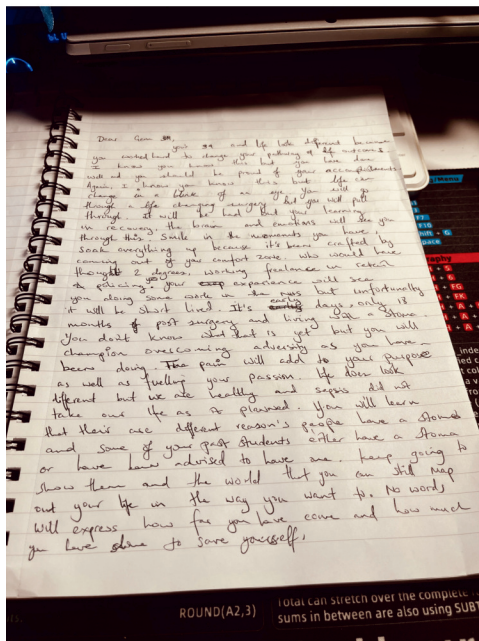 Dear Gem
your 39 and life looks different because
you worked hard to change your pathway of life outcomes
I know you know this but you have done
well and you should be proud of your accomplishments
Again, I know you know this but life can
change in a blink of an eye. You will go
through a life changing surgery but you will pull
through it will be hard but your learning
in recovery the brain and emotions will see you
through this. Smile in the moments you have,
Soak everything up because it's been crafted by
coming out of your comfort zone. Who would have
thought 2 degrees, working freelance in retail
& policing, yes your experience will see
you doing some work in the but unfortunelty
it will be short lived. It's early days, only 13
months of post surgery and living with a stoma.
You don't know what that is yet but you will
champion overcoming adversity as you have
been doing. The pain will add to your purpose
as well as fuelling your passion. Life does look
different but we are healthy and sepsis did not
take our life as it planned. You will learn
that their are different reason's people have a stoma
and some of your past students either have a stoma
or have been advised to have one. keep going to
show them and the world that you can still map
out your life in the way you want to. No words
will express how far you have come and how much
you have done to save yourself.
ROUND(A2,3)
Total can stretch over the complete
sums in between are also using